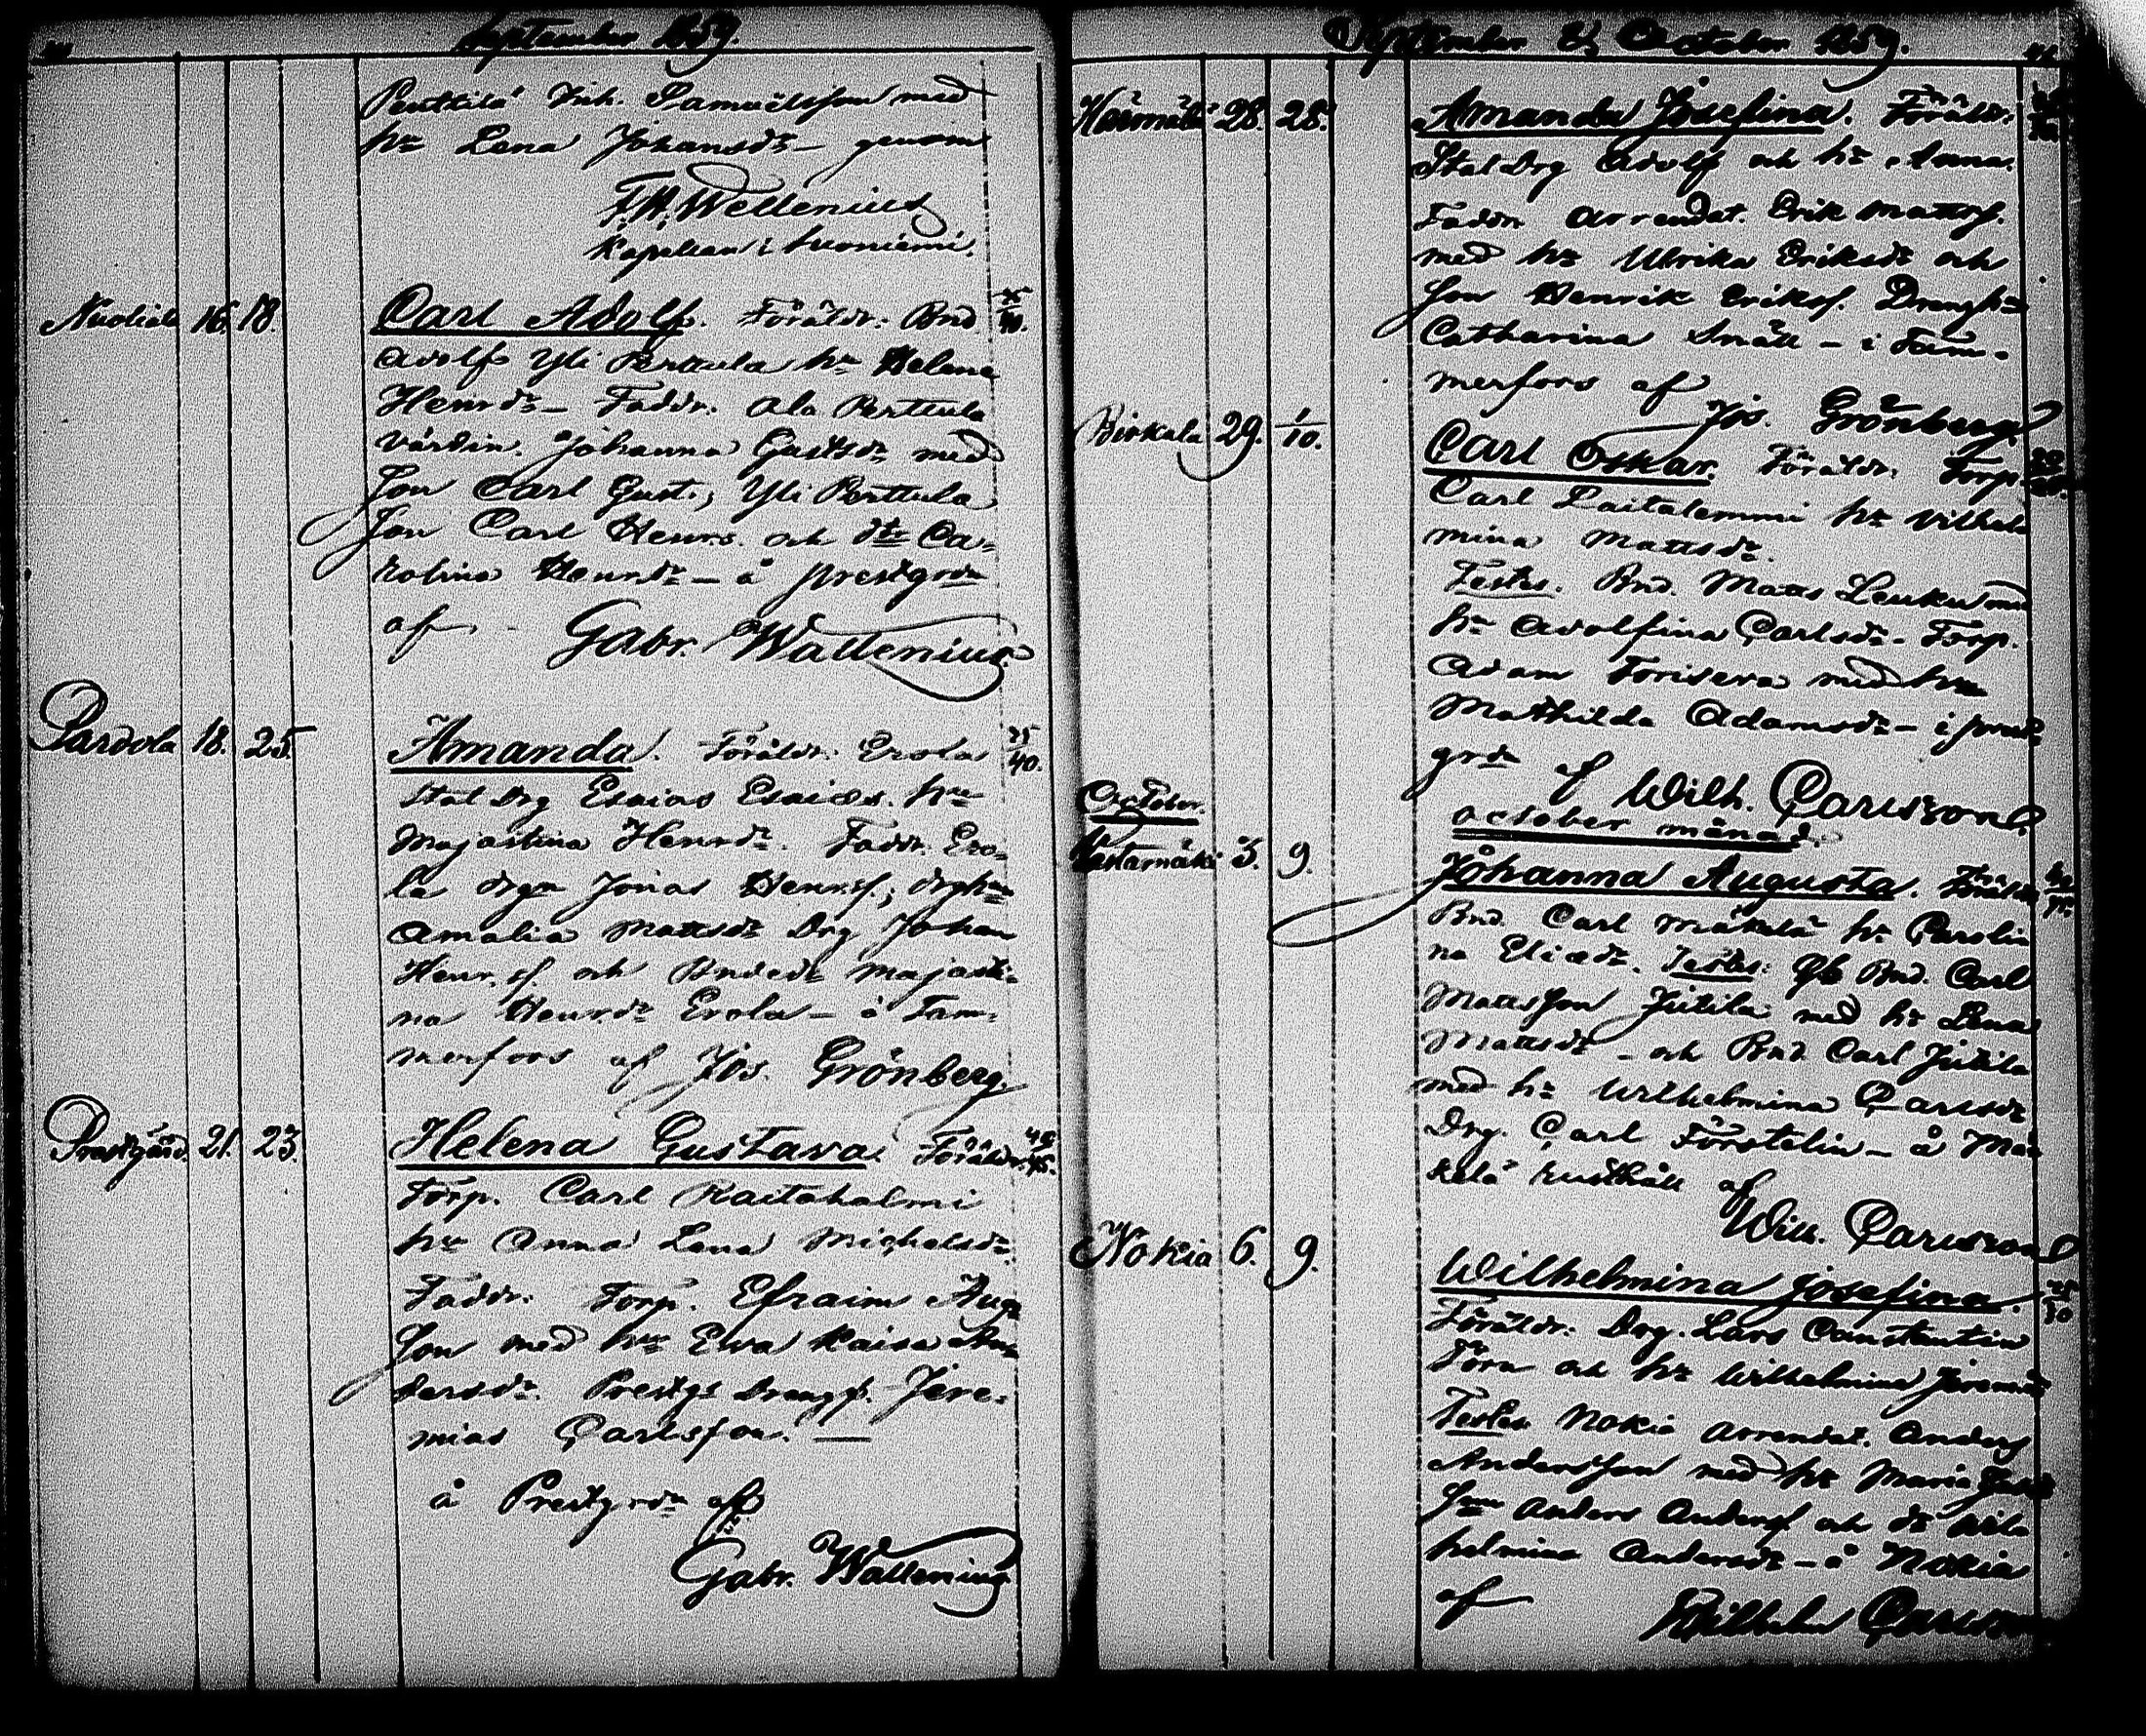 September 1859.
Penttilä Joh. Samuelsson med
h: Lena Johansdr — genom
F. H. Wellenius
Kapellan i Suoniemi.
Nuoliala 16. 18. Carl Adolf. Föräldr: Bnd
Adolf Yli Perttula h: Helena
Henrdr — Faddr. Ala Perttula
värdin. Johanna Gustsdr med
son Carl Gust:, Yli Perttula
son Carl Henrs. och dtr Ca-
rolina Henrdr — å prestgrdn
af Gabr. Wallenius
Pardola 18. 25. Amanda. Föräldr: Erola 25/40.
Stat Drg Esaias Esaiæs. h:
Majastina Henrdr. Faddr. Ero-
la drgn Jonas Henrss, drgh:
Amalia Mattsdr Drg Johan
Henr. s. och Bndedr Majasti-
na Henrdr Erola — å Tam-
merfors af Jos. Grönberg
Prestgård. 21. 23. Helena Gustava. Föräldr. 45.
Torp. Carl Raitahalmi
h: Anna Lena Michelsdr.
Faddr. Torp. Efraim Aug:
son med h: Ewa Kaisa An-
dersdr. Prestgs Drengss. Jere-
mias Carlsson. —
å Prestgrdn af
Gabr. Wallenius
September & October 1859.
28. 28. Amanda Josefina. Föräldr:
Stat Drg Adolf och h: Anna.
Faddr. Arrendat. Erik Mattss.
med h: Ulrika Eriksdr och
son Henrik Erikss. Drengh:
Catharina Snäll — i Tam-
merfors af
Jos. Grönberg
Birkala 29. 1/10. Carl Oskar. Föräldr: Torp.
Carl Laitalemmi h: Vilhel
mina Mattsdr.
Testes. Bnd. Matts Leuku med
h: Adolfina Carlsdr — Torp.
Adam Toriseva med h:
Mathilda Adamsdr — i prest
grdn af Wilh. Carlsson
October. October månad.
3. 9. Johanna Augusta. Föräldr
Bnd. Carl Mäkelä h: Caroli
na Eliædr. Testes: Bnd. Carl
Mattsson Jutila med h: Lena
Mattsdr — och Bnd. Carl Jutila
med h: Wilhelmina Carlsdr
Drg. Carl Förstelin — å Mä
kelä rusthåll af
Wilh. Carlsson
Nokia 6. 9. Wilhelmina Josefina.
Föräldr: Drg. Lars Constantin
Törn och h: Wilhelmina Jeremi
Testes Nokia arrendat. Anders
Andersson med h: Maria
son Anders Anderss och dr Wil
helmina Andersdr — å Nokia
af Wilhelm Carlsson